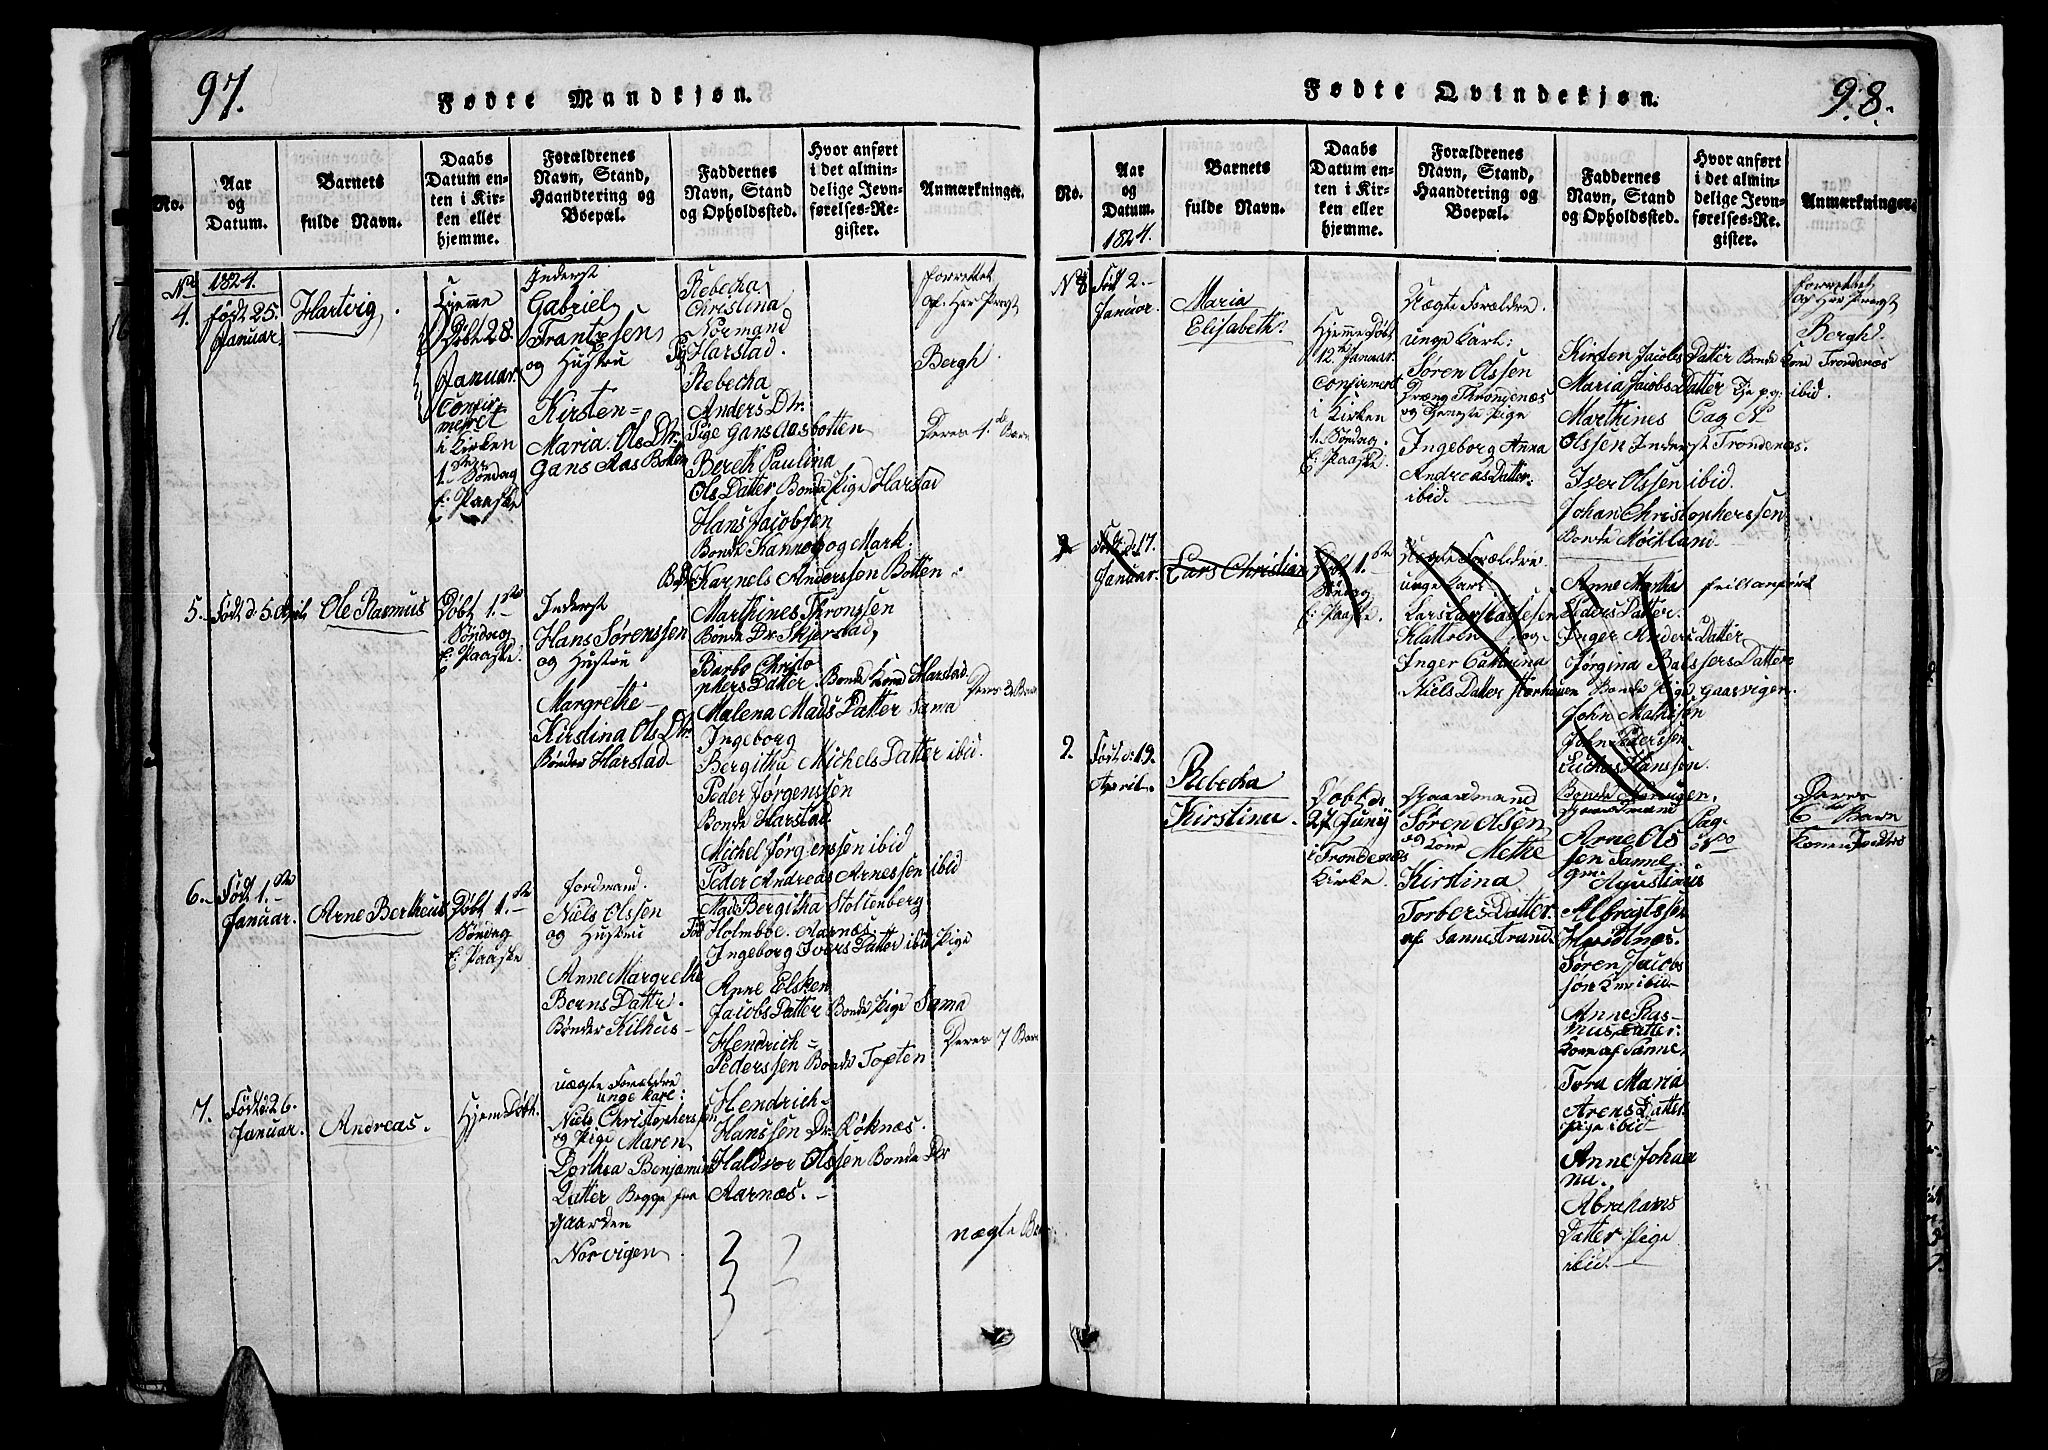 97.
Fødte Mandkjøn.
No.
Aar
og
Datum.
Barnets
fulde Navn.
Daabs
Datum en-
ten i Kir-
ken eller
hjemme.
Forældrenes
Navn, Stand,
Haandtering og
Boepæl.
Faddernes
Navn, Stand
og Opholdssted.
Hvor anført
i det almin-
delige Jevn-
førelses-Re-
gister.
Anmærkninger.
1824.
4.
født 25.
Januar
Hartvig
Hjemme
Døbt 28
Januar
Confir-
meret
i Kirken
1. Søndag
E: Paaske
Inderst
Gabriel
Frantzsen
og Hustru
Kirsten=
Maria Ols Dtr
Gans Aas Botten
Rebecha
Christina
Normand
Harstad.
Rebecha
Anders Dtr.
Pige Gansaasbotten
Bereth Paulina
Ols Datter Bonde Pige Harstad
Hans Jacobsen
Bonde Kanneb og Mark.
Karnels Anderssen Botten
forrettet
af Her Præst
Bergh.
Deres 1de Barn
5.
Født d 5 April
Ole Rasmus
Døbt 1.ste
Søndag
E: Paaske.
Inderst
Hans Sørenssen
og Hustru
Margrethe
Kirstina Ols Dtr
Bønder Harstad
Marthines Thronssen
Bonde Dr. Skjerstad,
Barbo Christo
phers Datter Bonde Kone Harstad
Malena Mads Datter Sama
Ingeborg
Bergitha Michels Datter ibid.
Peder Jørgenssen
Bonde Harstad
Michel Jørgenssen ibid
Peder Andreas Arnessen ibid
6.
Født 1.ste
Januar.
Arne Bertheus
Døbt 1.ste
Søndag
E: Paaske
Niels Olssen
og Hustru
Anne Margrethe
Berns Dattr.
Bønder Kilhus
Mad. Bergitha Stoltenberg
Holmboe. Aarnæs.
Ingeborg Ivers Datter ibid Pige
Anne Elsken
Jacobs Datter Bonde Pige Sama
Hendrich=
Pederssen Bonde Topten
Deres 7 Barn
7.
Født d: 26.
Januar.
Andreas.
Hjem Døbt.
uægte Forældre
unge karl:
Niels Christopherssen
og Pige Maren
Dorthea Benjamins
Datter Begge fra
gaarden
Norvigen
Hendrich
Hanssen Dr. Røknæs.
Haldvor Olssen Bonde Dr
Aarnæs.
98.
Fødte Qvindekjøn.
No.
Aar
og
Datum.
1824.
Barnets
fulde Navn.
Daabs
Datum en-
ten i Kir-
ken eller
hjemme.
Forældrenes
Navn, Stand,
Haandtering og
Boepæl.
Faddernes
Navn, Stand
og Opholdssted.
Hvor anført
i det almin-
delige Jevn-
førelses-Re-
gister.
Anmærkninger.
No 8
Født 2.
Januar.
Maria
Elisabeth.
Hjemme Døbt
12te Januar.
Confirmert
i Kirken
1. Søndag
E: Paaske.
Uægte Forældre.
unge karl:
Søren Olssen
Dreng Throndenæs
og tjeneste Pige
Ingeborg Anna
Andreas Datter
ibid.
Kirsten Jacobs Datter Bonde Kone Trondenæs
Maria Jacobs Datter Tje pg: ibid.
Marthines
Olssen Inderst Trondenæs.
Iver Olssen ibid.
Johan Christopherssen
Bonde Møchland
forrettet
af Her Præst
Bergh.
Født d. 17.
Januar.
Lars Christian
Døbt 1.ste
Søndag
E: Paaske.
Uægte Forældre
unge karl:
Klattren og
Inger Cathrina
Niels Datter
Anne Martha
Peders Datter.
Inger Anders Datter
Jørgina Balssers Datter
Bonde Pige Gaasvigen.
John Mathisen
John Pedersen
Luchas Hanssen
feil anført
9.
Født d: 19.
April
Rebecha
Kirstina.
Døbt d:
27 Juny
i Trondenæs
Kirke.
Gaardmand
Søren Olsen
og Kone Methe
Kirstina
Torbers Datter
af Sannestrand
Gaardmand
Arne Ols
sen Sanne
gm. Agustinus
Albregtssen
Søren Jacobs
søn ibid
Anne Ras-
mus Datter
Kone af Sanne.
Tora Maria
Arens Datter
Pige ibid
Anne Johan
na.
Abrahams
Datter Pige
ibid.
Deres
6te Barn